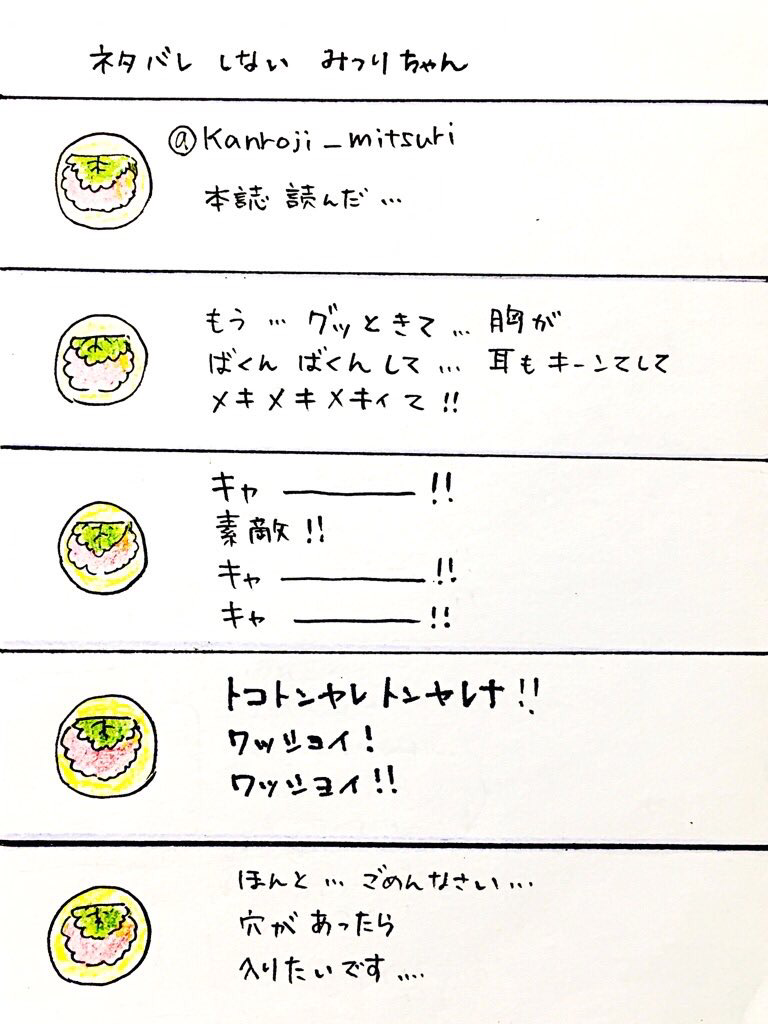 ネタバレ しない みつりちゃん
@Kanroji_mitsuri
本誌 読んだ…
もう … グッときて … 胸が
ばくん ばくん して … 耳も キーンてして
メキメキメキィて !!
キャ ――― !!
素敵 !!
キャ ――― !!
キャ ――― !!
トコトンヤレトンヤレナ !!
ワッショイ !
ワッショイ !!
ほんと … ごめんなさい …
穴が あったら
入りたいです ….